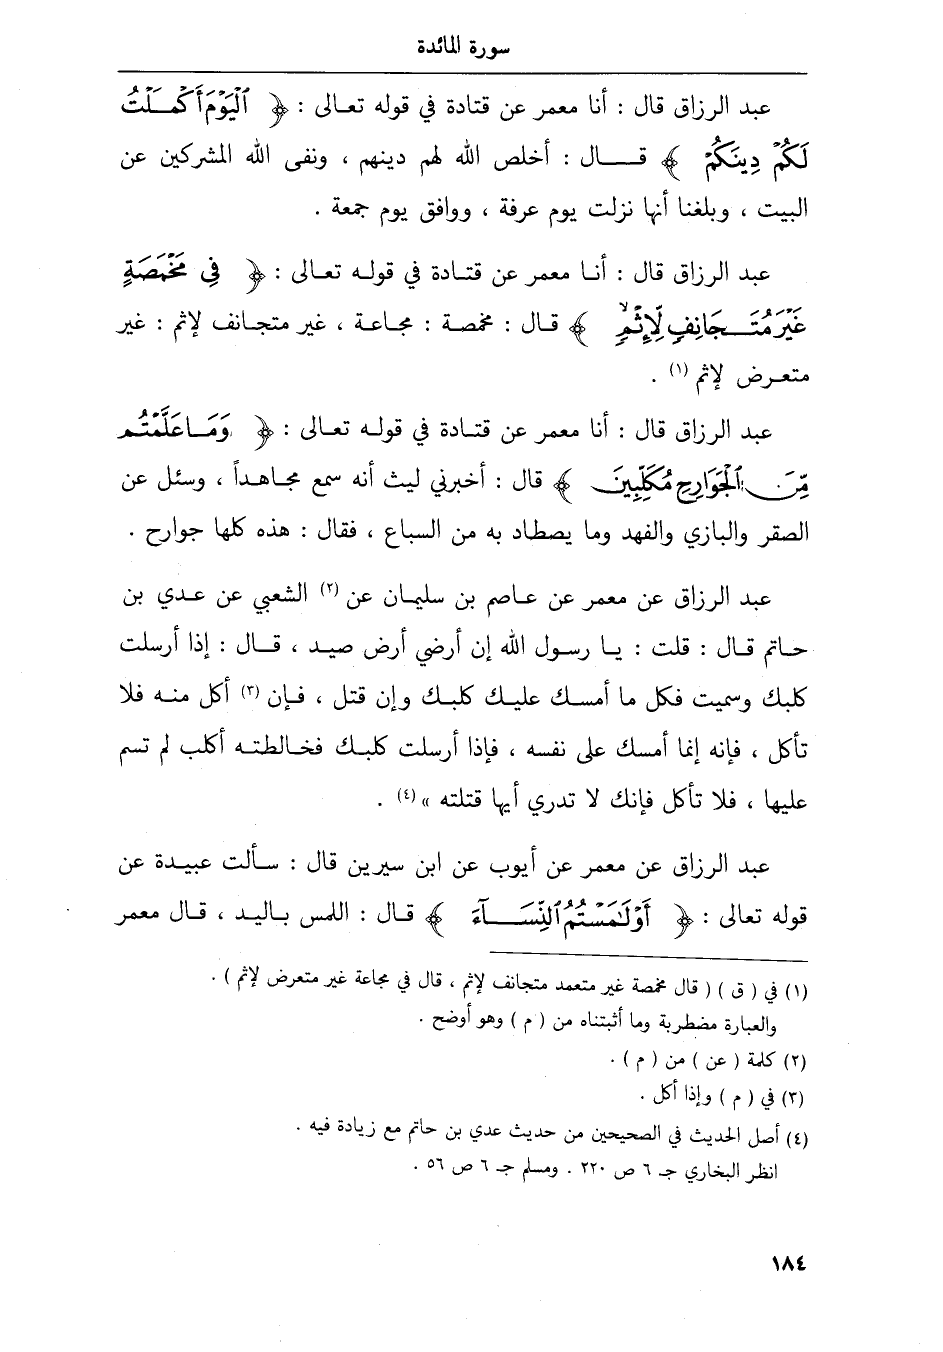 سورة المائدة
عبد الرزاق قال : أنا معمر عن قتادة في قوله تعـالى : ﴿ ٱلْيَوْمَ أَكْمَلْتُ
لَكُمْ دِينَكُمْ ﴾ قـــال : أخلص الله لهم دينهم ، ونفى الله المشركين عن
البيت ، وبلغنا أنها نزلت يوم عرفة ، ووافق يوم جمعة .
عبد الرزاق قال : أنـا معمر عن قتـادة في قولـه تعـالى : ﴿ فِى مَخْمَصَةٍ
غَيْرَ مُتَجَانِفٍ لِّإِثْمٍۙ ﴾ قـال : مخمصة : مجـاعة ، غير متجـانف لإثم : غير
متعـرض لإثم (١) .
عبد الرزاق قال : أنا معمر عن قتـادة في قولـه تعـالى : ﴿ وَمَا عَلَّمْتُم
مِّنَ ٱلْجَوَارِحِ مُكَلِّبِينَ ﴾ قال : أخبرني ليث أنه سمع مجـاهـداً ، وسئل عن
الصقر والبازي والفهد وما يصطاد به من السباع ، فقال : هذه كلها جوارح .
عبد الرزاق عن معمر عن عـاصم بن سليمان عن (٢) الشعبي عن عـدي بن
حـاتم قـال : قلت : يـا رسـول الله إن أرضي أرض صيـد ، قـال : إذا أرسلت
كلبك وسميت فكل ما أمسـك عليـك كلبـك وإن قتل ، فـإن (٣) أكل منـه فلا
تأكل ، فإنه إنما أمسك على نفسه ، فإذا أرسلت كلبـك فخـالطتـه أكلب لم تسم
عليها ، فلا تأكل فإنك لا تدري أيها قتلته » (٤) .
عبد الرزاق عن معمر عن أيوب عن ابن سيرين قال : سـألت عبيـدة عن
قوله تعالى : ﴿ أَوْ لَٰمَسْتُمُ ٱلنِّسَآءَ ﴾ قـال : اللمس بـاليـد ، قـال معمر
(١) في ( ق ) ( قال مخمصة غير متعمد متجانف لإثم ، قال في مجاعة غير متعرض لإثم ) .
والعبارة مضطربة وما أثبتناه من ( م ) وهو أوضح .
(٢) كلمة ( عن ) من ( م ) .
(٣) في ( م ) وإذا أكل .
(٤) أصل الحديث في الصحيحين من حديث عدي بن حاتم مع زيادة فيه .
انظر البخاري جـ ٦ ص ٢٢٠ . ومسلم جـ ٦ ص ٥٦ .
١٨٤